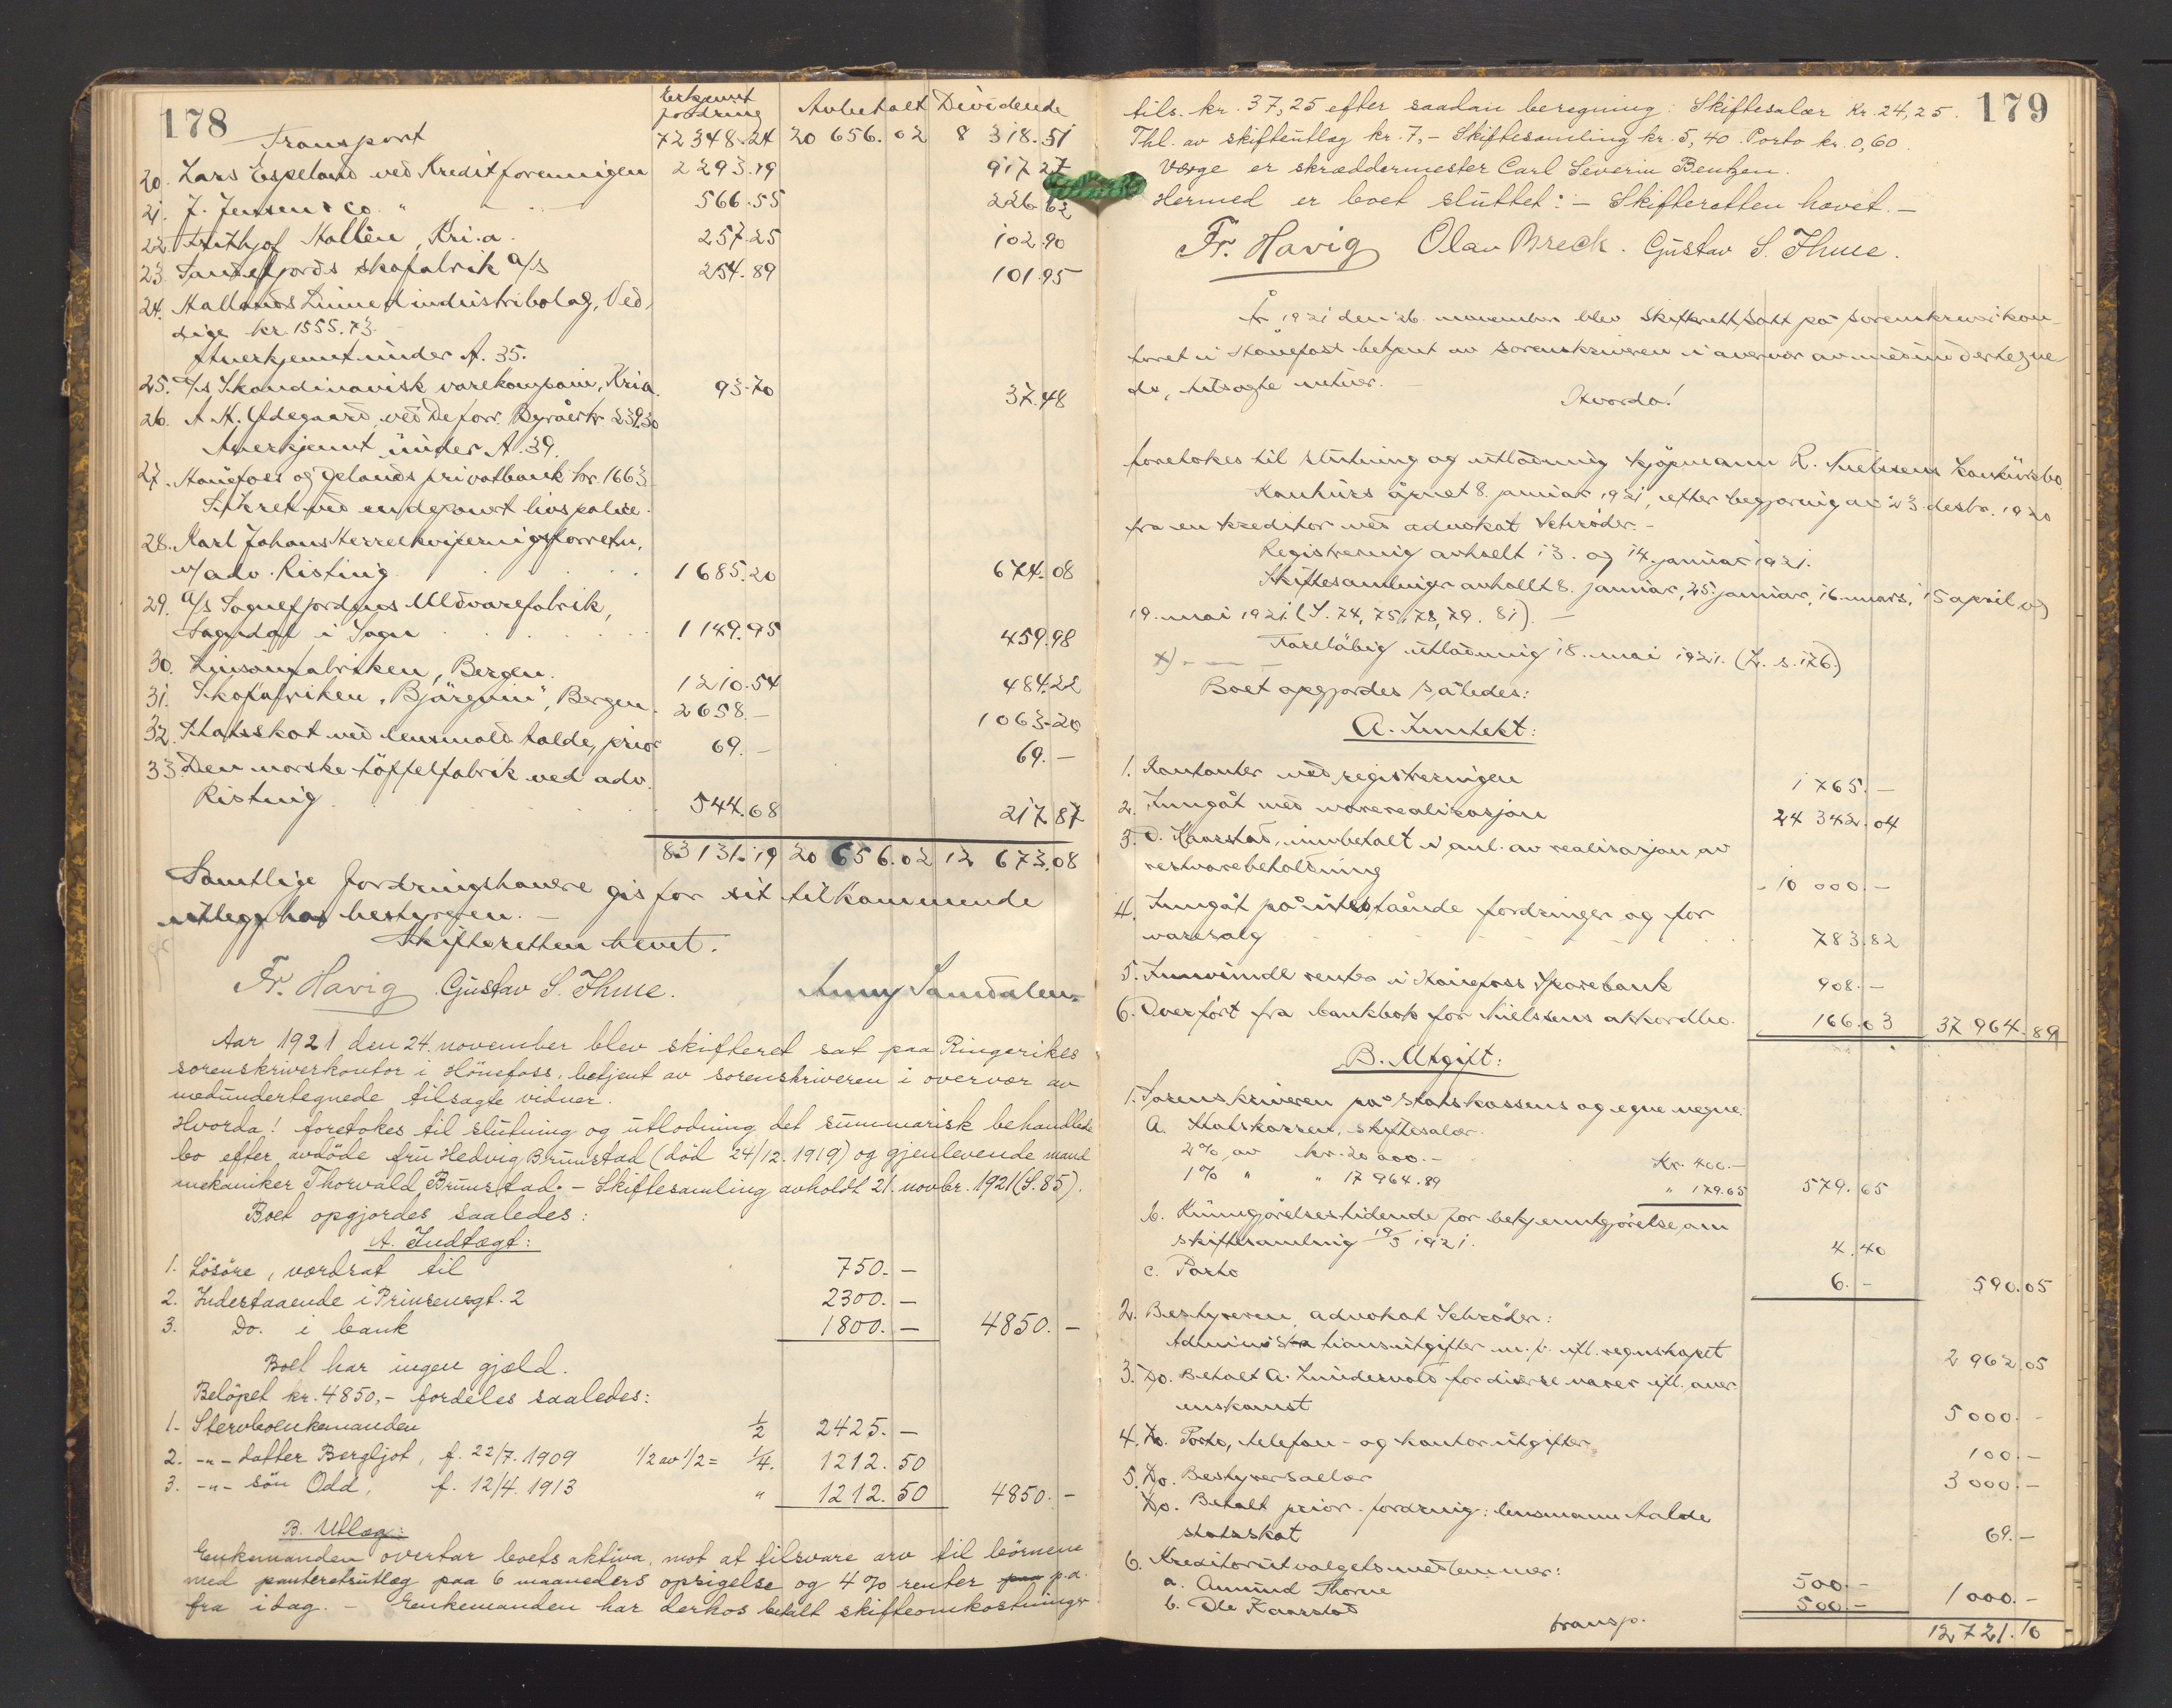 178
Erkjent
fordring Avbetalt Dividende
Transport 72348.24 20656.02 8318.51
20. Lars Espeland ved Kreditforeningen 2293.19 917.27
21. J. Jensen & Co. " 566.55 226.62
22. Frithjof Hallèn, Kri.a. 257.25 102.90
23. Sandefjords skofabrik a/s 254.89 101.95
24. Hallands Linnedindustribolag, Ved-
dige kr. 1555.73.
Anerkjennt under A. 35.
25. a/s Skandinavisk varekompani, Kria. 93.70 37.48
26. A. H. Ødegaard, ved De forr. Byråer kr. 239.30
Anerkjennt under A. 39.
27. Hönefoss og Oplands privatbank kr. 1663
Sikret ved endeponert livspolice.
28. Karl Johans Herreekviperingsforretn.
v/ adv. Risting 1685.20 674.08
29. a/s Sognefjordens Uldvarefabrik,
Sogndal i Sogn 1149.95 459.98
30. Linsömfabriken, Bergen. 1210.54 484.22
31. Skofabriken "Björgvin", Bergen. 2658.- 1063.20
32. Statsskat ved lensmand Aalde, prior 69.- 69.-
33. Den norske töffelfabrik ved adv.
Risting 544.68 217.87
83131.19 20656.02 12673.08
Samtlige fordringshavere gis for sit tilkommende
utlegg hos bestyreren. -
Skifteretten hevet.
Fr. Havig Gustav S. Thme. Anny Sandalen
Aar 1921 den 24. november blev skifteret sat paa Ringerikes
sorenskriverkontor i Hönefoss, betjent av sorenskriveren i overvær av
medundertegnede tilsagte vidner.
Hvorda! foretokes til slutning og utlodning det summarisk behandlede
bo efter avdöde fru Hedvig Brunstad (död 24/12. 1919) og gjenlevende mand
mekaniker Thorvald Brunstad. - Skiftesamling avholdt 21. novbr. 1921 (S. 85).
Boet opgjordes saaledes:
A. Indtægt:
1. Lösöre, værdsat til 750.-
2. Indestaaende i Prinsensgt. 2 2300.-
3. Do. i bank 1800.- 4850.-
Boet har ingen gjæld.
Belöpet kr. 4850,- fordeles saaledes:
1. Stervboenkemanden 1/2 2425.-
2. -"- datter Bergljot, f. 22/7. 1909 1/2 av 1/2 = 1/4. 1212.50
3. -"- sön Odd, f. 12/4. 1913 " 1212.50 4850.-
B. Utlæg:
Enkemanden overtar boets aktiva, mot at tilsvare arv til börnene
med panteretsutlæg paa 6 maaneders opsigelse og 4% renter paa p.a.
fra idag. - Enkemanden har derhos betalt skifteomkostninger
179
tils. kr. 37,25 efter saadan beregning: Skiftesalær kr. 24,25.
Thl. av skifteutlæg kr. 7,- Skiftesamling kr. 5,40 Porto kr. 0,60.
Værge er skræddermester Carl Severin Bentzen.
Hermed er boet sluttet: - Skifteretten hævet. -
Fr. Havig Olav Breck. Gustav S. Thme.
År 1921 den 26. november blev skifterett satt på sorenskriverkon-
toret i Hönefoss betjent av sorenskriveren i overvær av medundertegne-
de, tilsagte vidner. -
Hvorda!
foretokes til slutning og utlodning kjöpmann R. Nielsens konkursbo.
Konkurs åpnet 8. januar 1921, efter begjæring av 23. desbr. 1920
fra en kreditor ved advokat Schröder. -
Registrering avholdt 13. og 14. januar 1921.
Skiftesamlinger avholdt 8. januar, 25. januar, 16. mars, 15 april og
19. mai 1921. (S. 74, 75, 78, 79. 81). -
x) - Foreløbig utlodning 18. mai 1921. (L. s. 176.)
Boet opgjordes således:
A. Inntekt:
1. Kontanter ved registreringen 1765.-
2. Inngåt ved varerealisasjon 24342.04
3. O. Kaarstad, innbetalt i anl. av realisasjon av
restvarebeholdning - 10000.-
4. Inngåt på utestående fordringer og for
varesalg 783.82
5. Innvundt renter i Hönefoss Sparebank 908.-
6. Overfört fra bankbok for Nielsens akkordbo. 166.03 37964.89
B. Utgift:
1. Sorenskriveren på statskassens og egne vegne:
a. Statskassen, skiftesalær.
2% av kr. 20000.- Kr. 400.-
1% " " 17964.89 " 179.65 579.65
b. Kunngjørelsestidende for bekjenntgjørelse om
skiftesamling 19/5 1921. 4.40
c. Porto 6.- 590.05
2. Bestyreren, advokat Schröder:
Administrationsutgifter m.v. efl. regnskapet 2962.05
3. Do. Betalt A. Lundesvold for diverse varer efl. over-
enskomst 5000.-
4. Do. Porto, telefon- og kontorutgifter 100.-
5. Do. Bestyrersalær 3000.-
Do. Betalt prior. fordring: lensmann Aalde
statsskat 69.-
6. Kreditorutvalgets medlemmer:
a. Amund Thorne 500.-
b. Ole Kaarstad 500.- 1000.-
transp. 12721.10